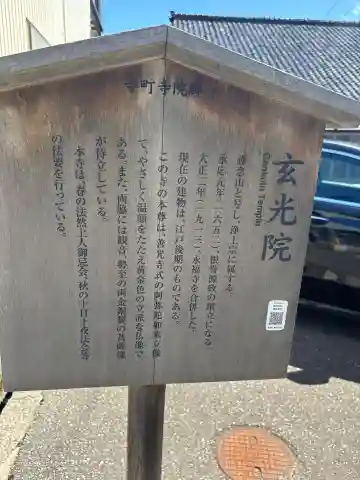 寺町寺院群
玄光院
Genkouin Temple
護念山と号し、浄土宗に属する
承応元年（一六五二）、
の建立になる
大正二年（一九一三）、永福寺を合併した。
現在の建物は、江戸後期のものである。
この寺の本尊は、善光寺式の阿弥陀如来立像
で、やさしく温顔をたたえ黄金色の立派な仏像で
ある。また、両脇には観音、勢至の両金銅製の菩薩像
が侍立している。
本寺は、春の法然上人御忌会、秋の十日十夜法会等
の法要を行っている。